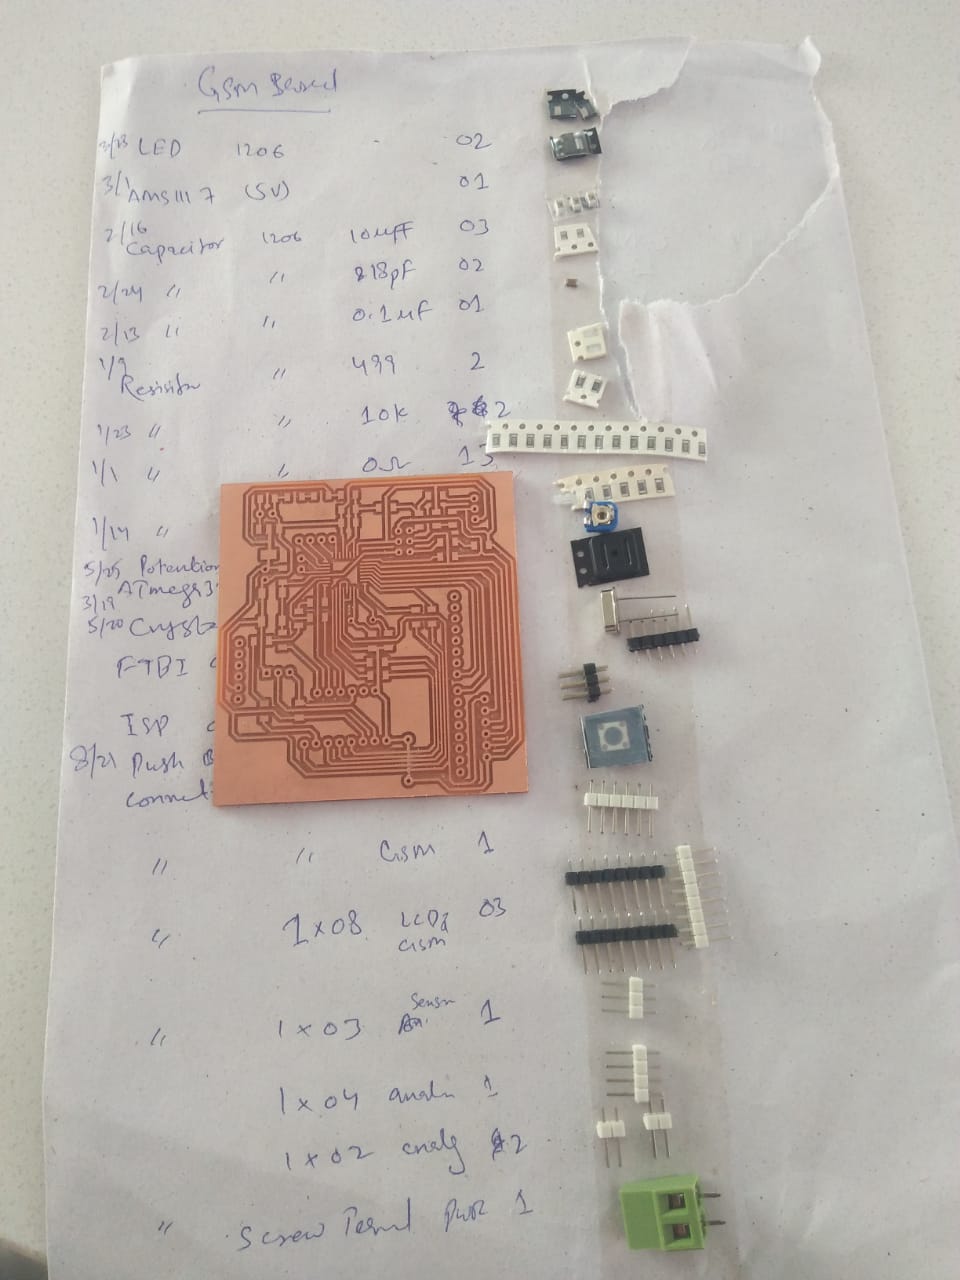 GSM Board
3/23 LED 1206 - 02
3/1 AMS1117 (5V) 01
2/16 Capacitor 1206 10uF 03
2/24 " " 18pF 02
2/13 " " 0.1uF 01
1/9 Resistor " 499 2
1/23 " " 10K 2
1/1 " " 0Ω 13
1/14 "
5/25 Potention
3/19 ATmega3
5/20 Crysta
FTDI
ISP
8/21 Push B
Connect
" " GSM 1
" 1x08 LCD & GSM 03
" 1x03 Sensor 1
1x04 analo 1
1x02 analg 2
" Screw Terml PWR 1